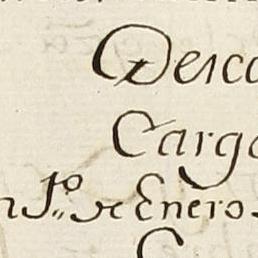 Desca
Cargo
n 1.º de Enero